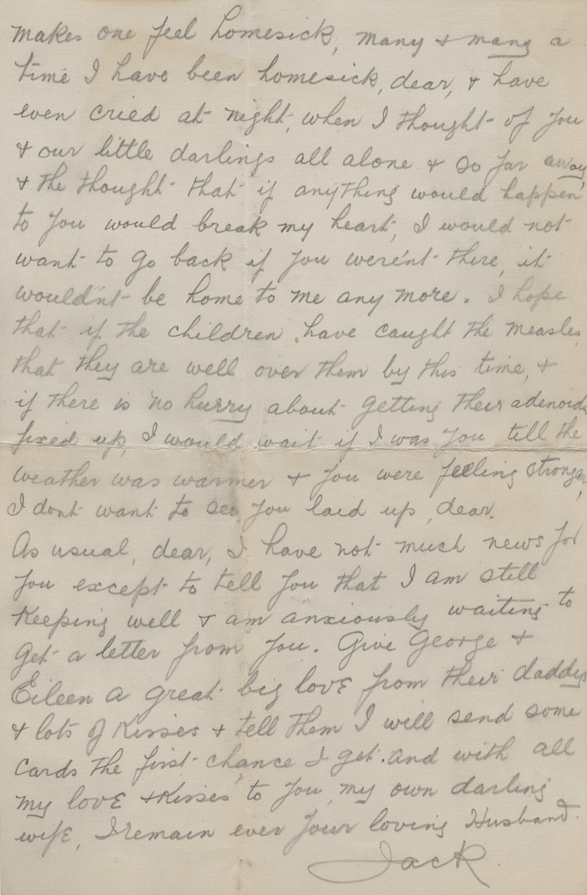 makes one feel homesick, many & many a
time I have been homesick, dear, & have
even cried at night, when I thought of you
& our little darlings all alone & so far away,
& the thought that if anything would happen
to you would break my heart, I would not
want to go back if you weren't there, it
would'nt be home to me any more. I hope
that if the children have caught the measles
that they are well over them by this time, &
if there is no hurry about getting their adenoids
fixed up, I would wait if I was you till the
weather was warmer & you were feeling stronger,
I dont want to see you laid up, dear.
As usual, dear, I have not much news for
you except to tell you that I am still
keeping well & am anxiously waiting to
get a letter from you. Give George &
Eileen a great big love from their daddy
& lots of kisses & tell them I will send some
cards the first chance I get. And with all
my love & kisses to you, my own darling
wife, I remain ever your loving Husband.
Jack